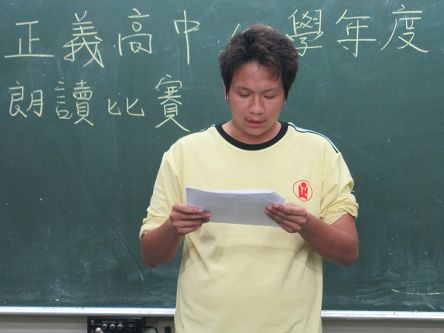 正義高中 學年度
朗讀比賽